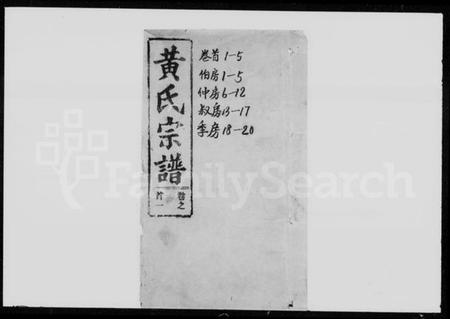 黃氏宗譜
卷之
首一
卷首1-5
伯房1-5
仲房6-12
叔房13-17
季房18-20
FamilySearch